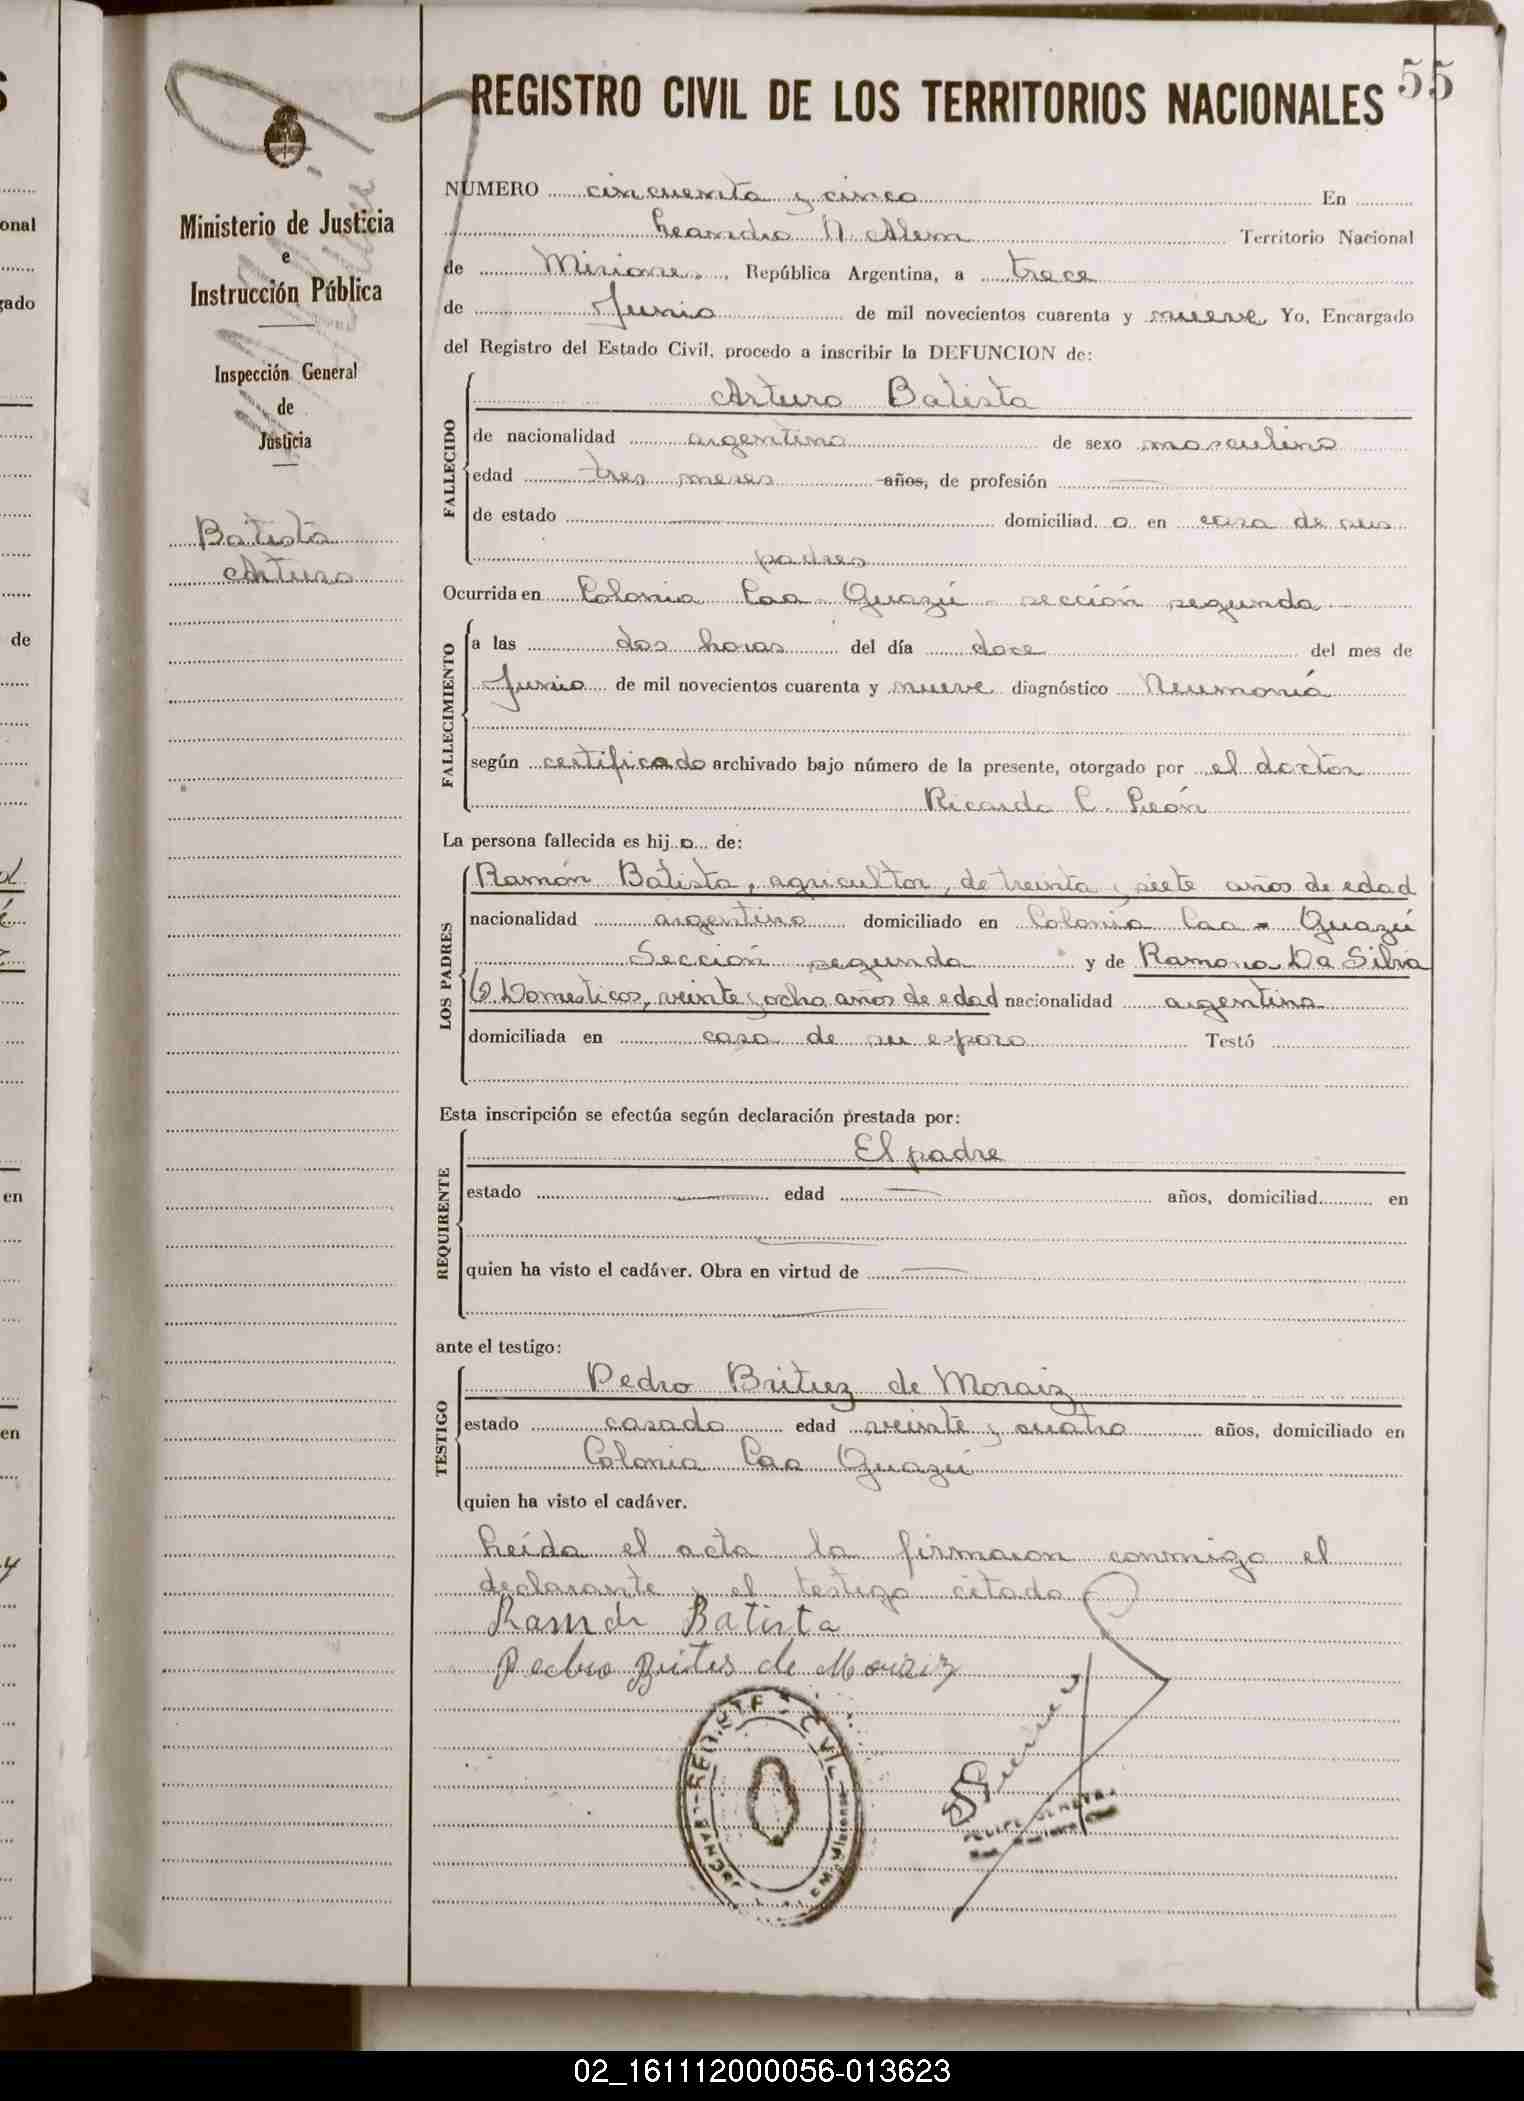 REGISTRO CIVIL DE LOS TERRITORIOS NACIONALES 55
Ministerio de Justicia
e
Instrucción Pública
Inspección General
de
Justicia
Batista
Arturo
NUMERO cincuenta y cinco En
Leandro N. Alem Territorio Nacional
de Misiones, República Argentina, a trece
de Junio de mil novecientos cuarenta y nueve Yo, Encargado
del Registro del Estado Civil, procedo a inscribir la DEFUNCION de:
FALLECIDO
Arturo Batista
de nacionalidad argentina de sexo masculino
edad tres meses años, de profesión
de estado domiciliad o en casa de sus
padres
Ocurrida en Colonia Caa-Guazú - sección segunda
FALLECIMIENTO
a las dos horas del día doce del mes de
Junio de mil novecientos cuarenta y nueve diagnóstico Neumonía
según certificado archivado bajo número de la presente, otorgado por el doctor
Ricardo C. León
La persona fallecida es hij o de:
LOS PADRES
Ramón Batista, agricultor, de treinta y siete años de edad
nacionalidad argentina domiciliado en Colonia Caa-Guazú
Sección segunda y de Ramona Da Silva
Q. Domesticos, veinte y ocho años de edad nacionalidad argentina
domiciliada en casa de su esposo Testó
Esta inscripción se efectúa según declaración prestada por:
REQUIRENTE
El padre
estado edad años, domiciliad en
quien ha visto el cadáver. Obra en virtud de
ante el testigo:
TESTIGO
Pedro Britez de Moraiz
estado casado edad veinte y cuatro años, domiciliado en
Colonia Caa Guazú
quien ha visto el cadáver.
Leída el acta la firmaron conmigo el
declarante y el testigo citado
Ramón Batista
Pedro Brites de Moraiz
CIVIL
02_161112000056-013623